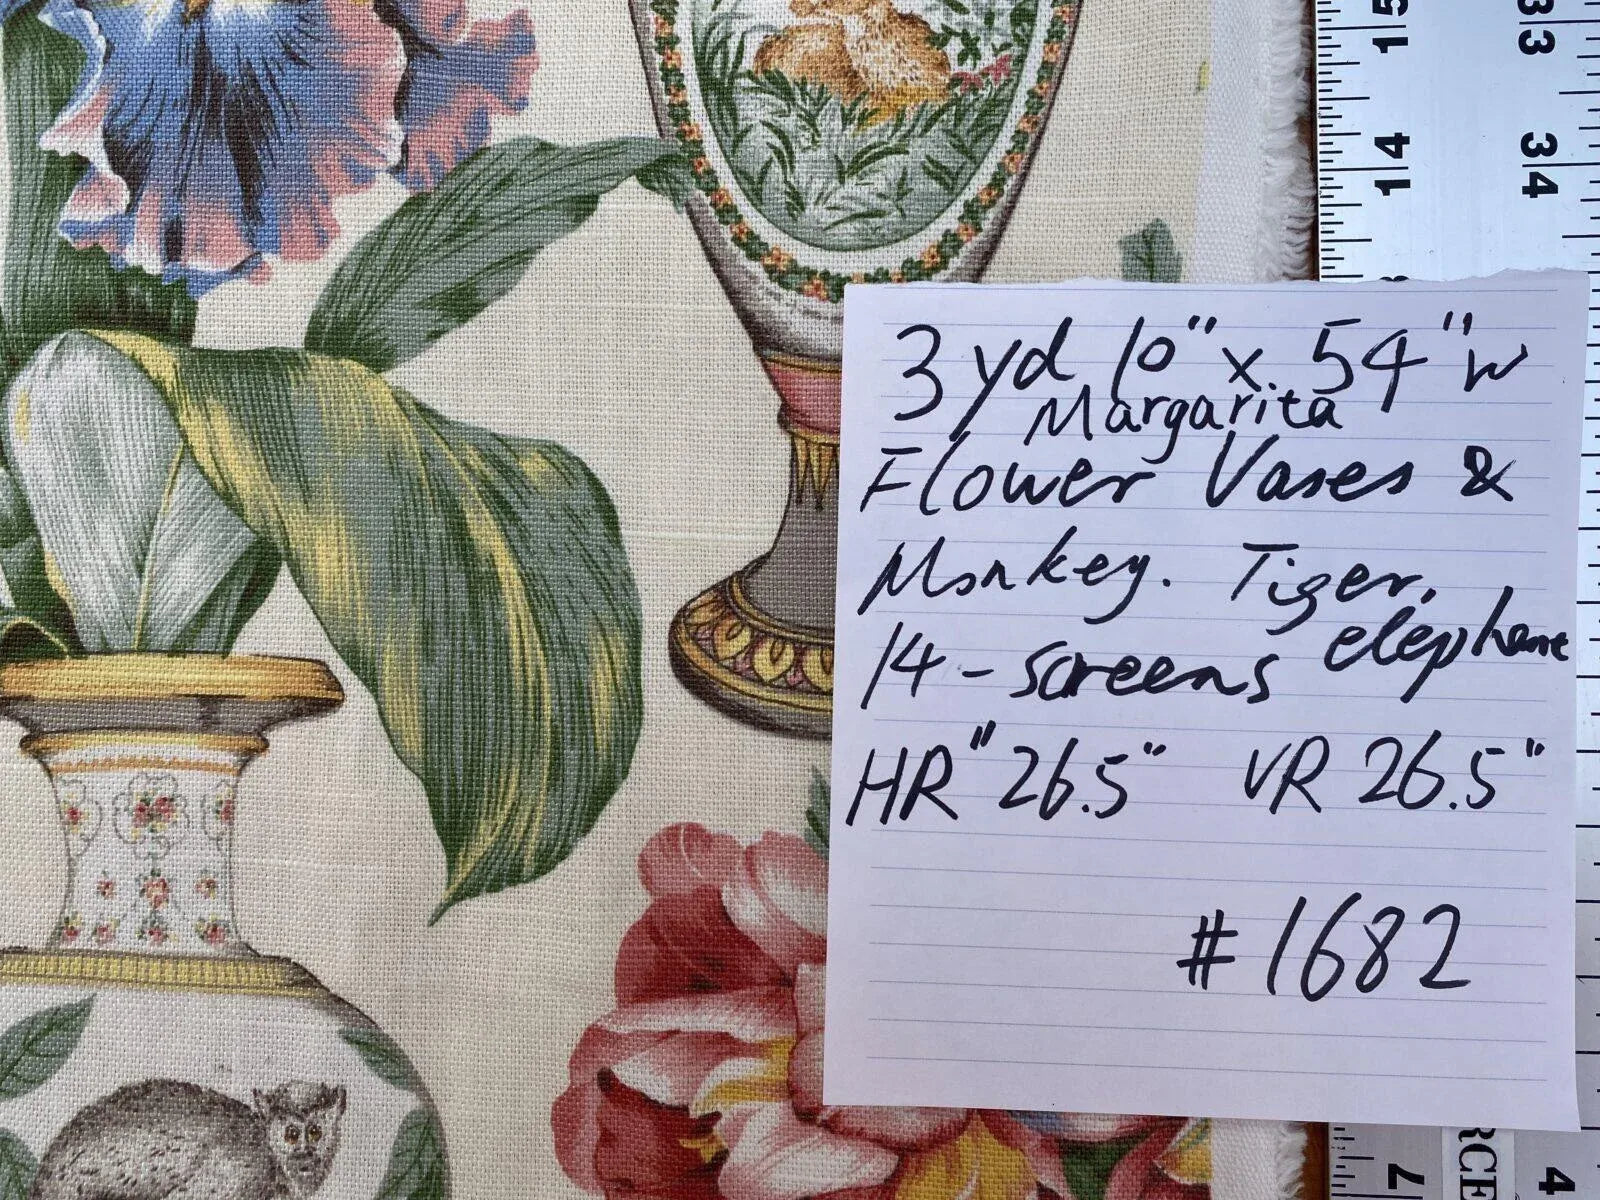 3 yd 10" x 54" W
Margarita
Flower Vases &
Monkey. Tiger.
14 - screens elephant
HR" 26.5" VR 26.5"
#1682
15
14
33
34
7
4